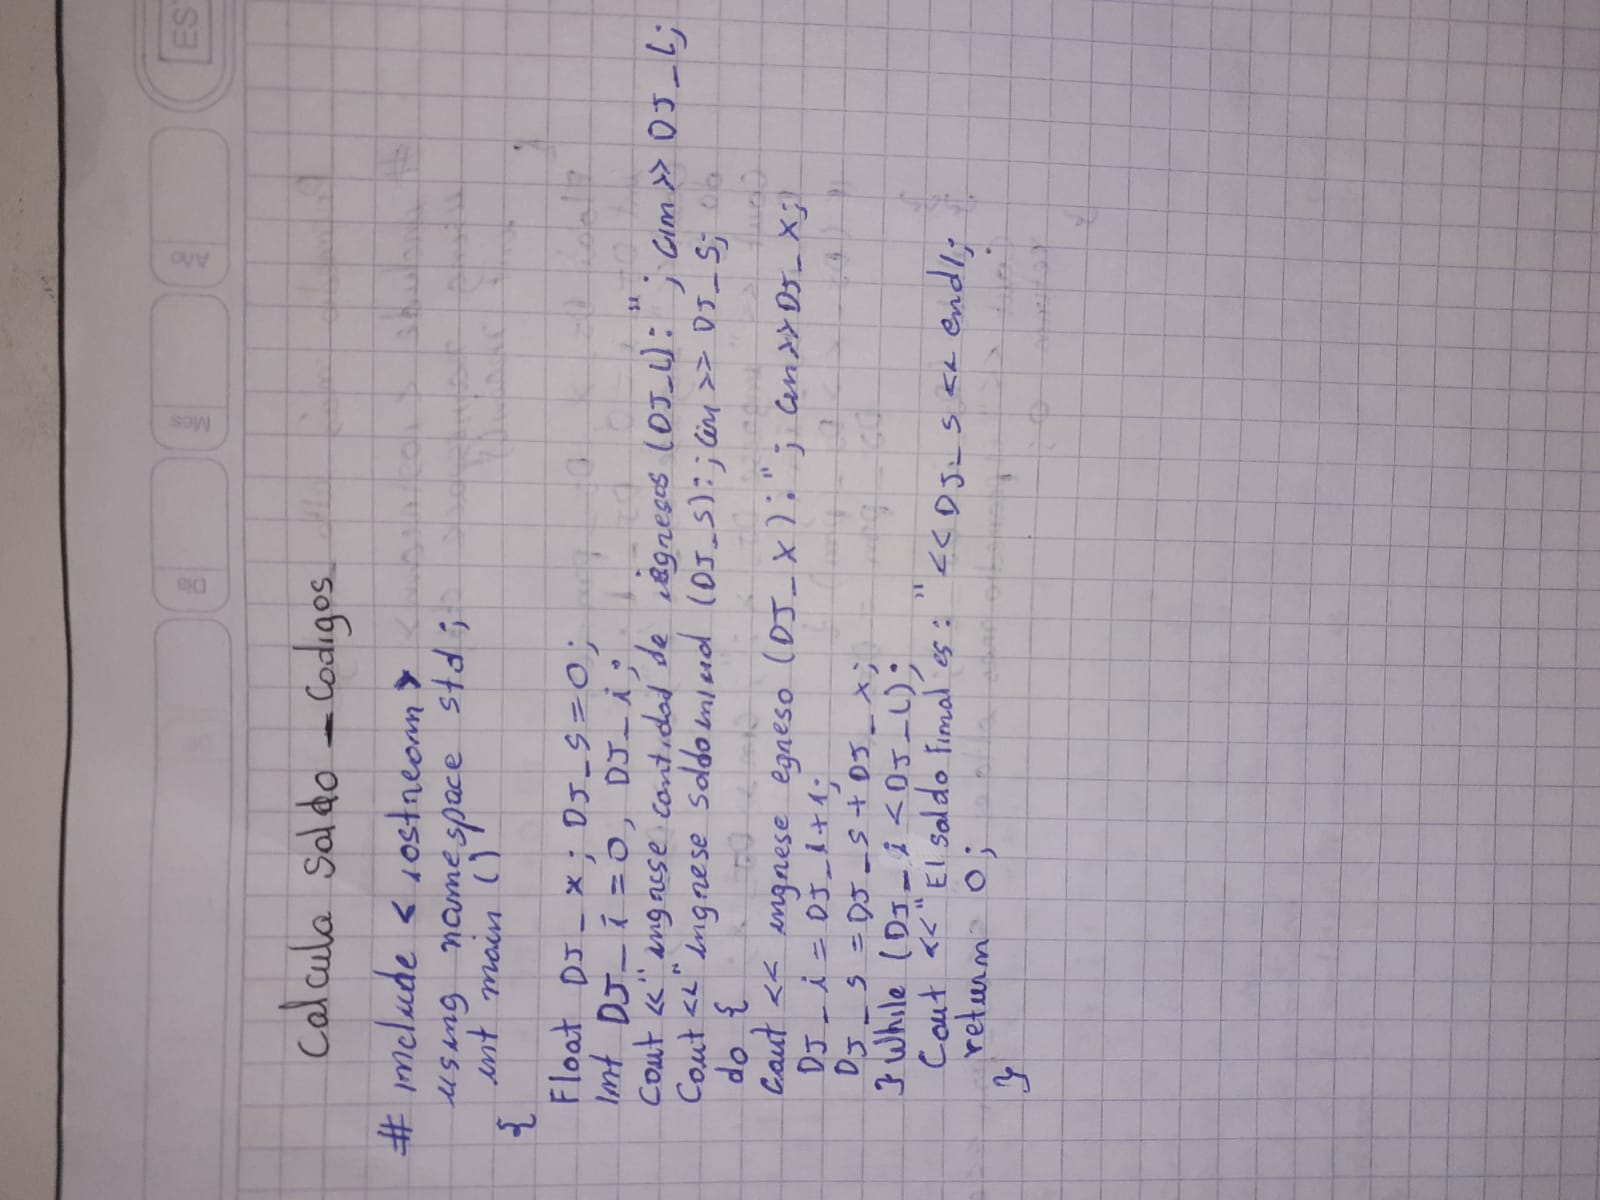 Dia
Mes
Año
ES
Calcula Saldo - Codigos
# include < iostream >
using namespace std;
int main ()
{
Float DJ_x; DJ_s=0;
Int DJ_i=0, DJ_i;
Cout <<"ingrese cantidad de egresos (DJ_L): "; cin >> DJ_L;
Cout <<"ingrese saldo (DJ_S):; cin >> DJ_S;
do {
Cout << ingrese egreso (DJ_X):"; cin>>DJ_X;
DJ_i = DJ_i+1;
DJ_s = DJ_s + DJ_x;
} While (DJ_i < DJ_L);
Cout <<"El saldo Final es: "<< DJ_s << endl;
return 0;
}